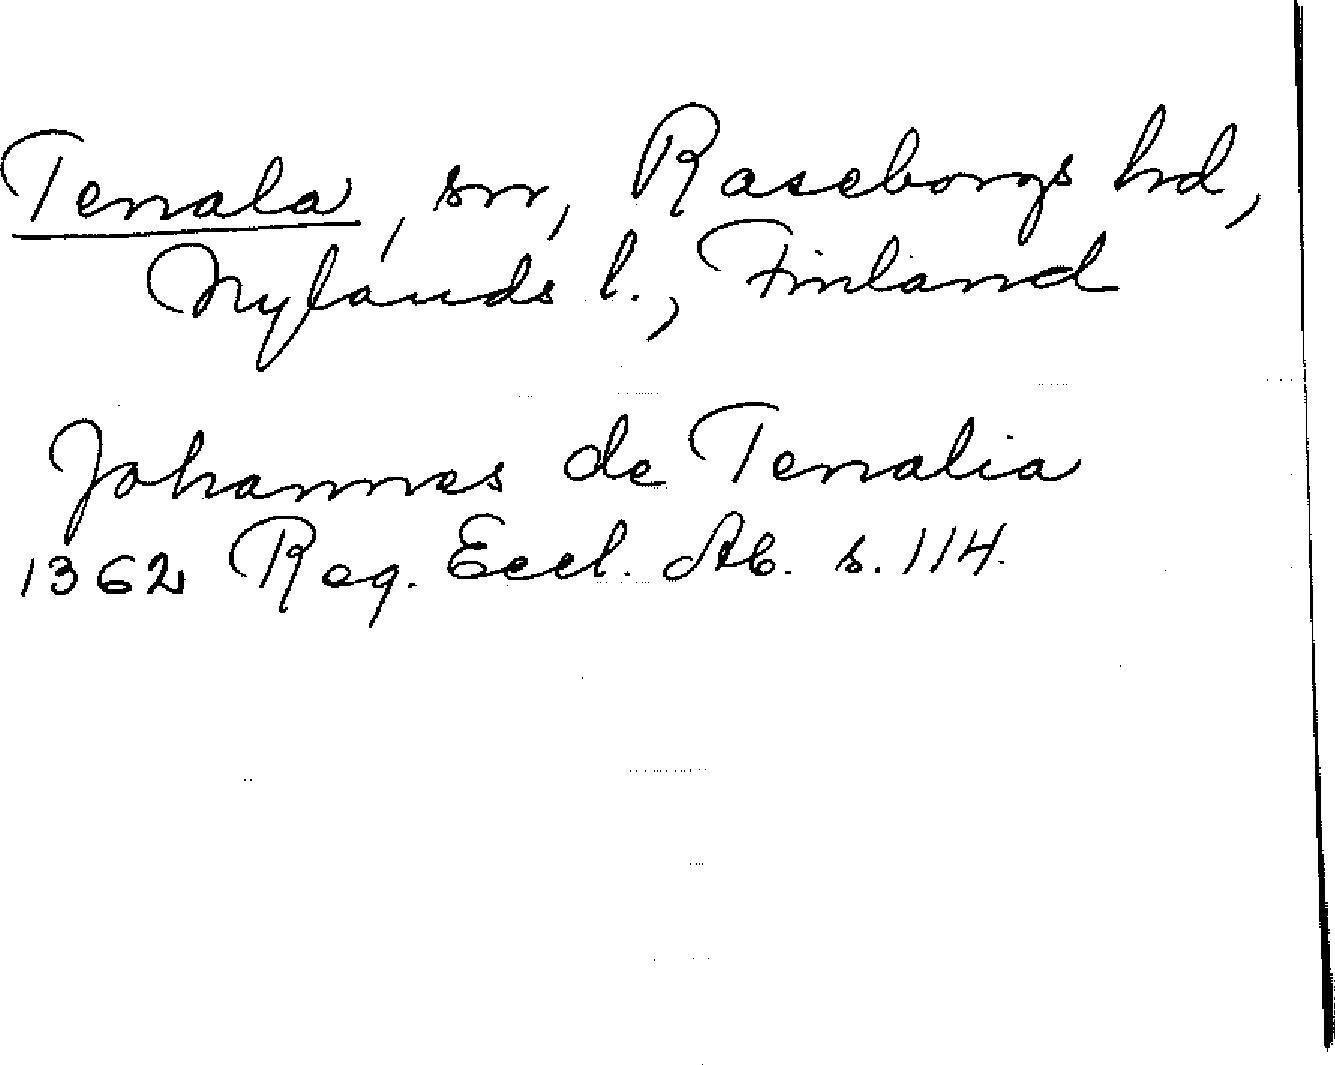 Tenala, sn, Raseborgs hd,
Nylands l., Finland
Johannes de Tenalia
1362 Reg. Eccl. Ab. s. 114.